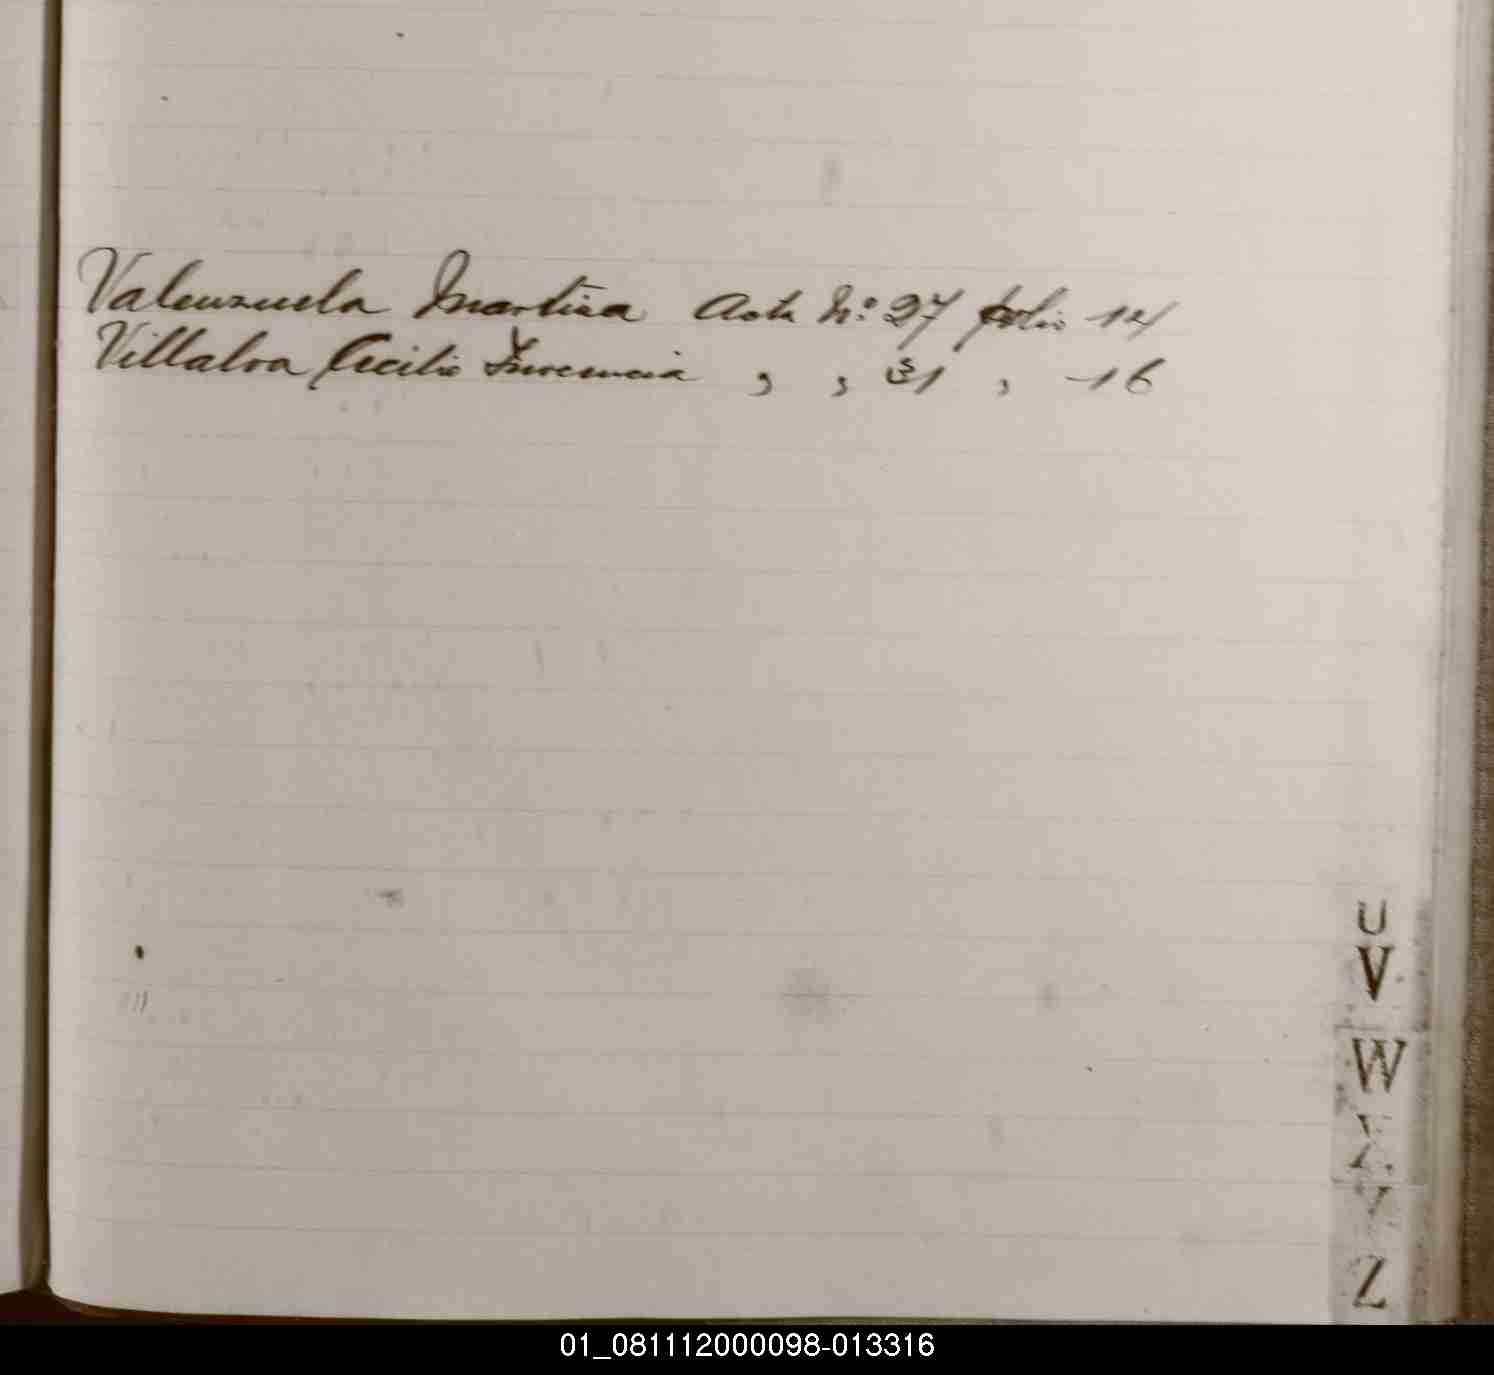 Valenzuela Martina Acta Nº 27 folio 14
Villalva Cecilio , , 31 , 16
U
V
W
Y
Z
01_081112000098-013316